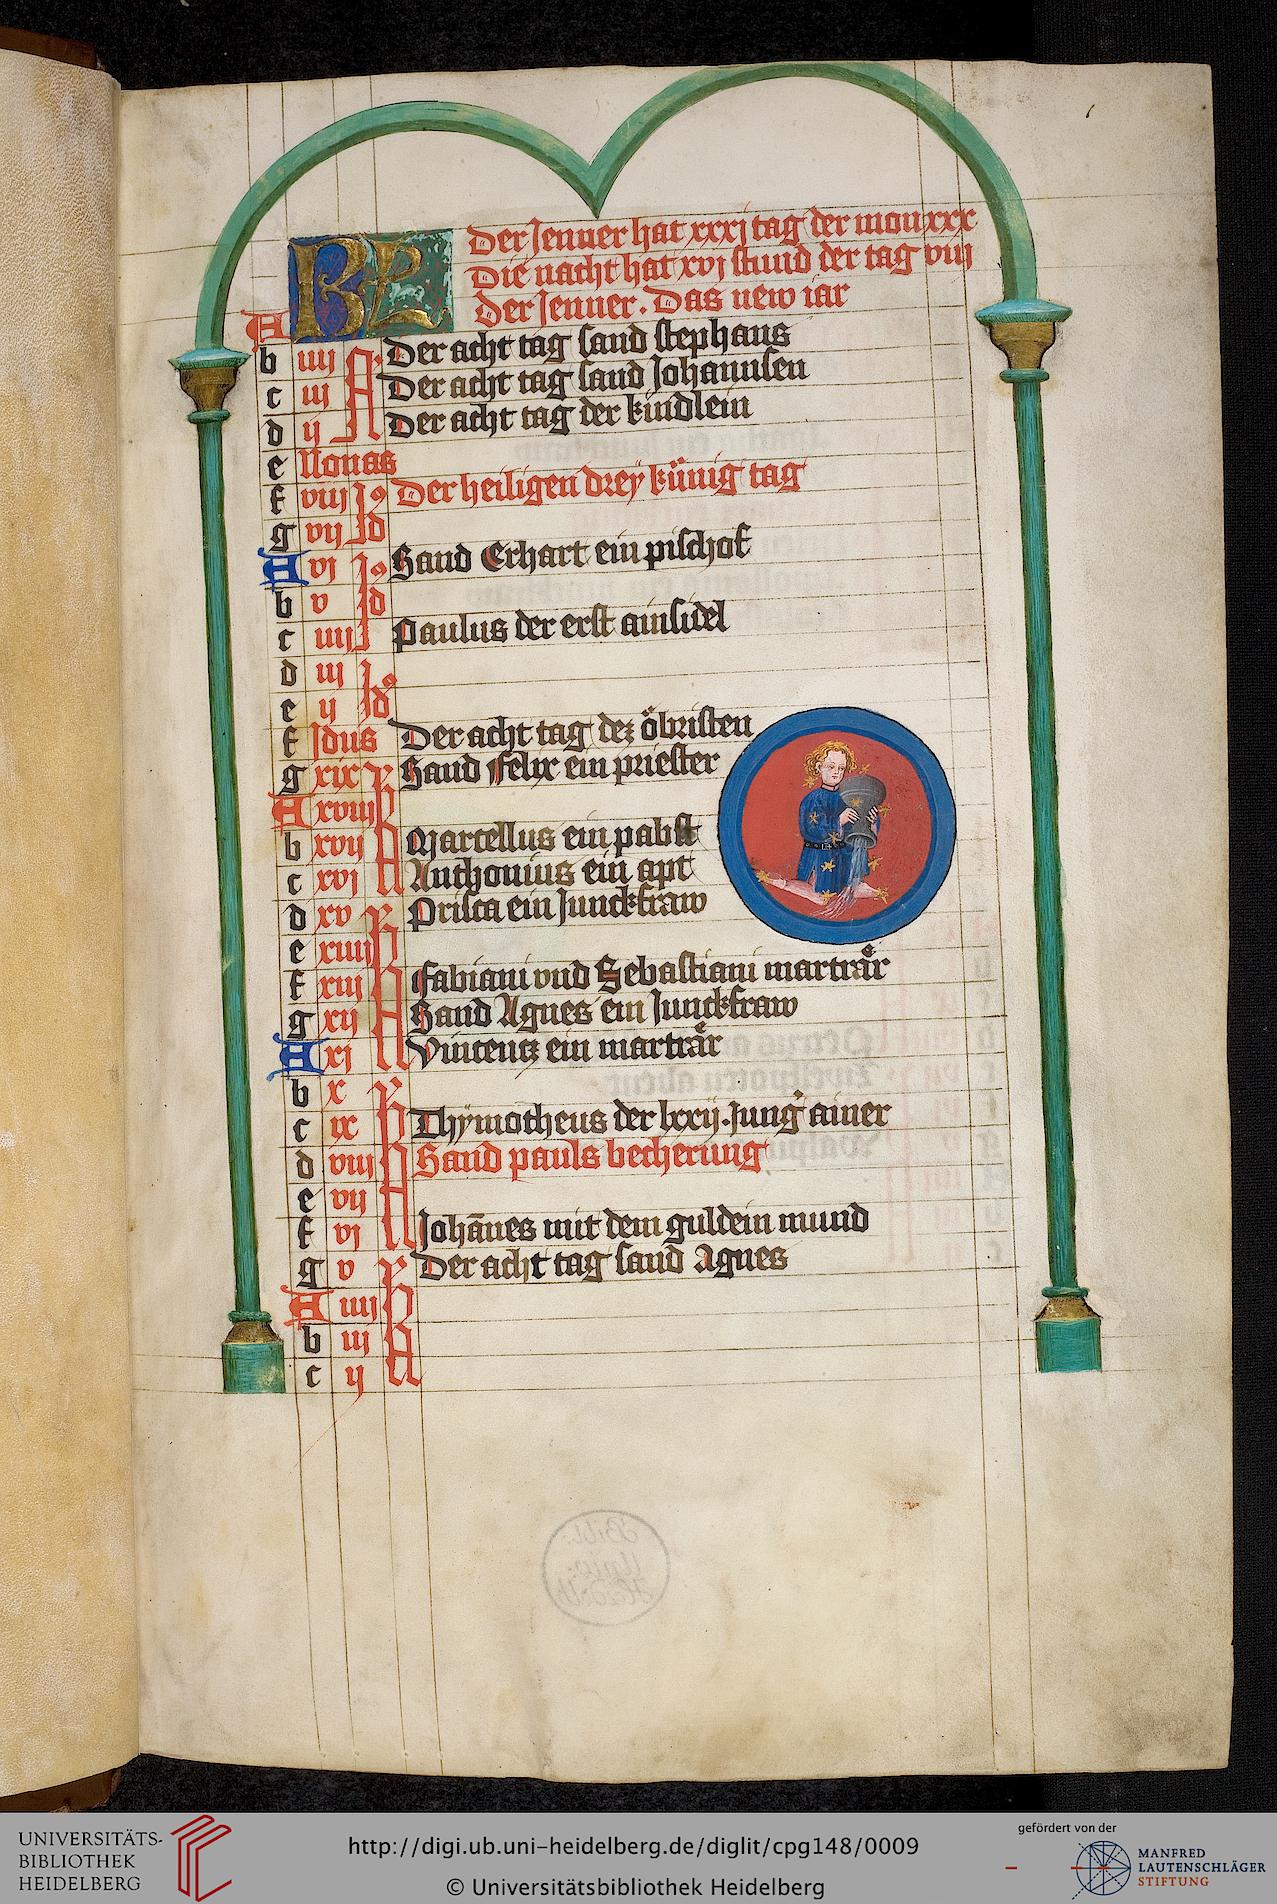 KL Der Jenner hat xxxj tag der mon xxx
Die nacht hat xvj stund der tag viij
A Der Jenner. Das new iar
b iiij N. Der acht tag sand stephans
c iij Der acht tag sand Johannsen
d ij Der acht tag der kindlein
e Nonas
f viij Jd Der heiligen dreÿ künig tag
g vij
A vj Jd Sand Erhart ein pischof
b v
c iiij Paulus der erst ainsidel
d iij Jd
e ij
f Jdus Der acht tag dez öbristen
g xix K Sand Felix ein priester
A xviij
b xvij A Marcellus ein pabst
c xvj Anthonius ein apt
d xv K Prisca ein Junckfraw
e xiiij
f xiij A Fabiani vnd Sebastiani marträr
g xij Sand Agnes ein Junckfraw
A xj Vincentz ein marträr
b x K
c ix Thÿmotheus der lxxij. Jung ainer
d viij A Sand pauls becherung
e vij
f vj Johānes mit dem guldein mund
g v K Der acht tag sand Agnes
A iiij
b iij A
c ij
UNIVERSITÄTS-
BIBLIOTHEK
HEIDELBERG
http://digi.ub.uni-heidelberg.de/diglit/cpg148/0009
© Universitätsbibliothek Heidelberg
gefördert von der
MANFRED
LAUTENSCHLÄGER
STIFTUNG